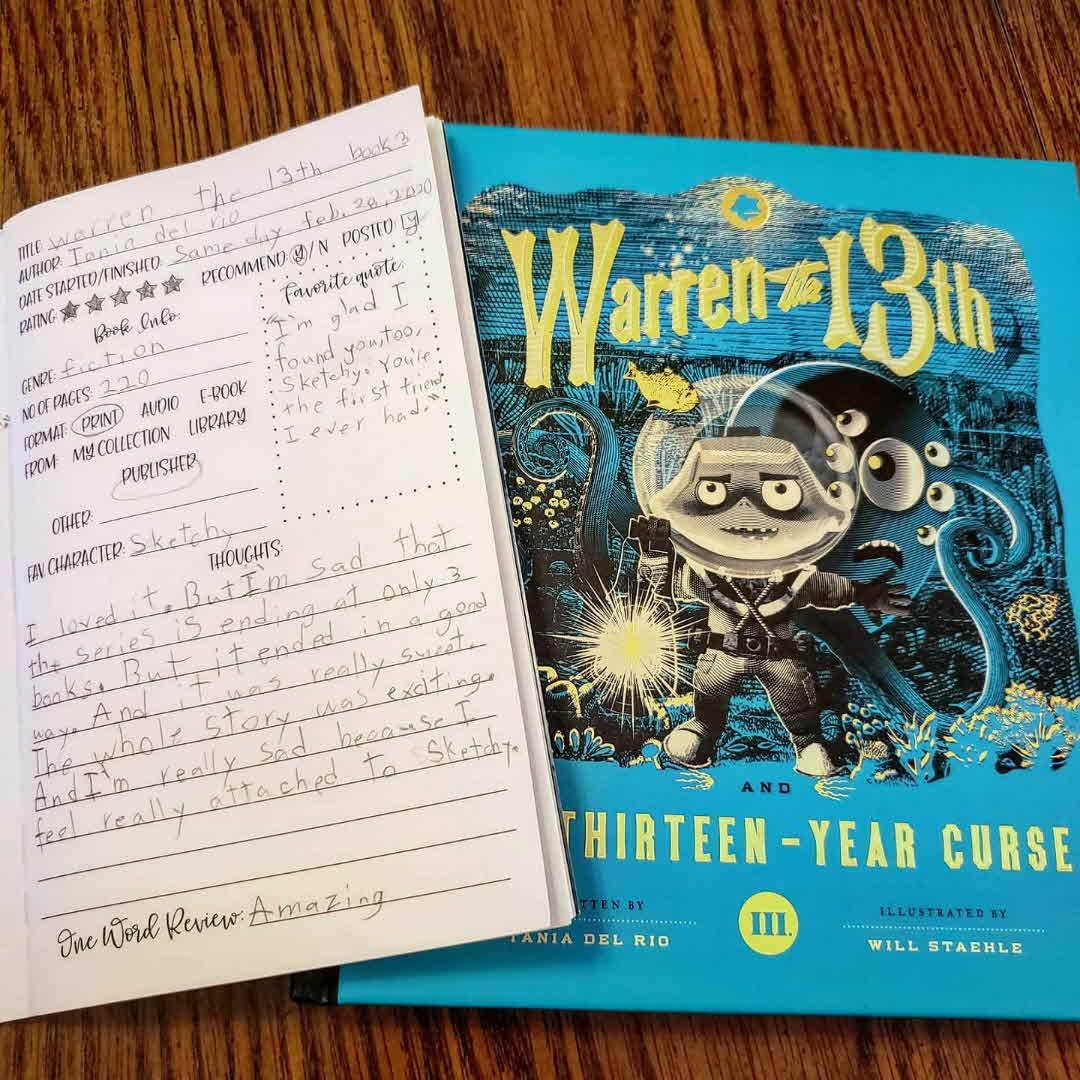 TITLE: warren the 13th book 3
AUTHOR: Tania del rio
DATE STARTED/FINISHED: Same day feb. 28, 2020
RATING: RECOMMEND: Y / N POSTED Y
Book Info:
GENRE: fiction
NO OF PAGES: 220
FORMAT: PRINT AUDIO E-BOOK
FROM: MY COLLECTION LIBRARY
PUBLISHER
OTHER:
Favorite quote:
"I'm glad I
found you, too,
Sketchy. You're
the first friend
I ever had."
FAV. CHARACTER: Sketchy
THOUGHTS:
I loved it. But I'm sad that
the series is ending at only 3
books. But it ended in a good
way. And it was really sweet.
The whole story was exciting.
And I'm really sad because I
feel really attached to Sketchy.
One Word Review: Amazing
Warren the 13th
AND
THIRTEEN-YEAR CURSE
TTEN BY
TANIA DEL RIO
III.
ILLUSTRATED BY
WILL STAEHLE